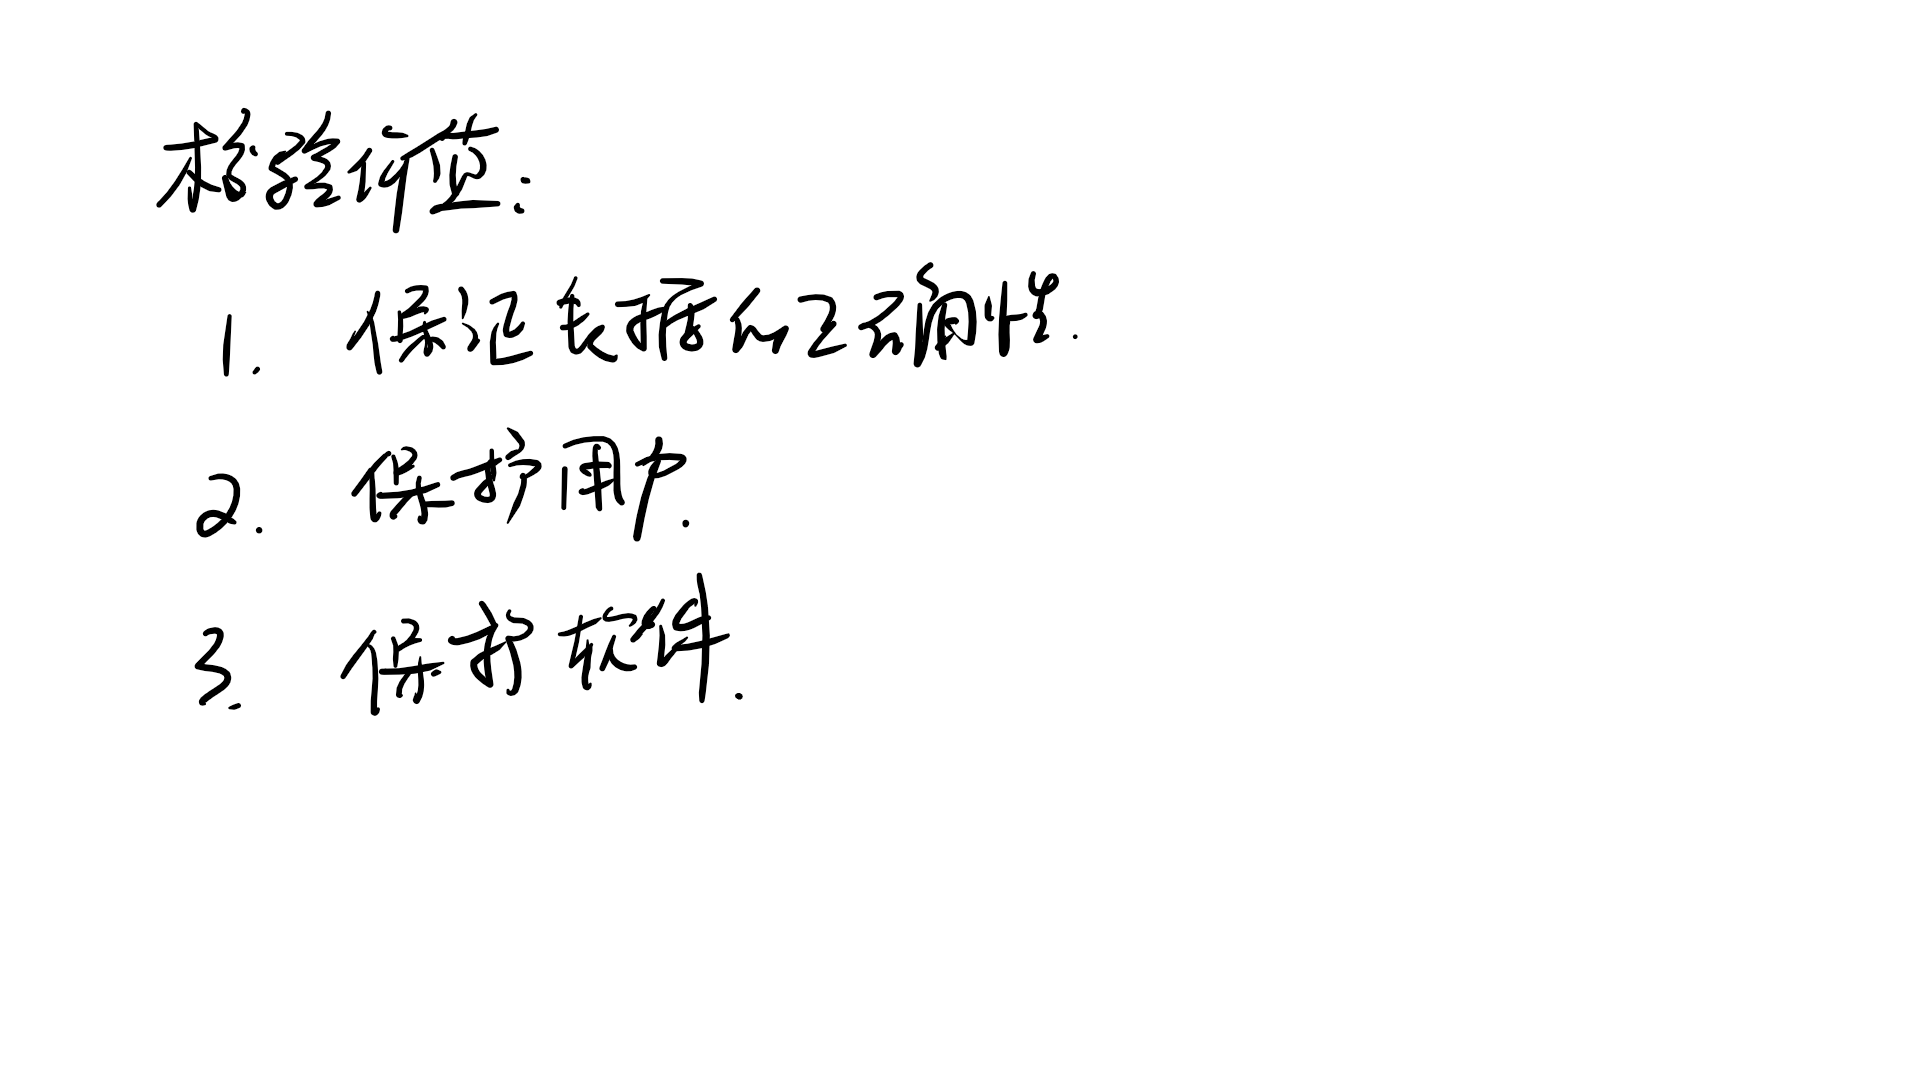 校验价值:
1. 保证数据的正确性.
2. 保护用户.
3. 保护软件.